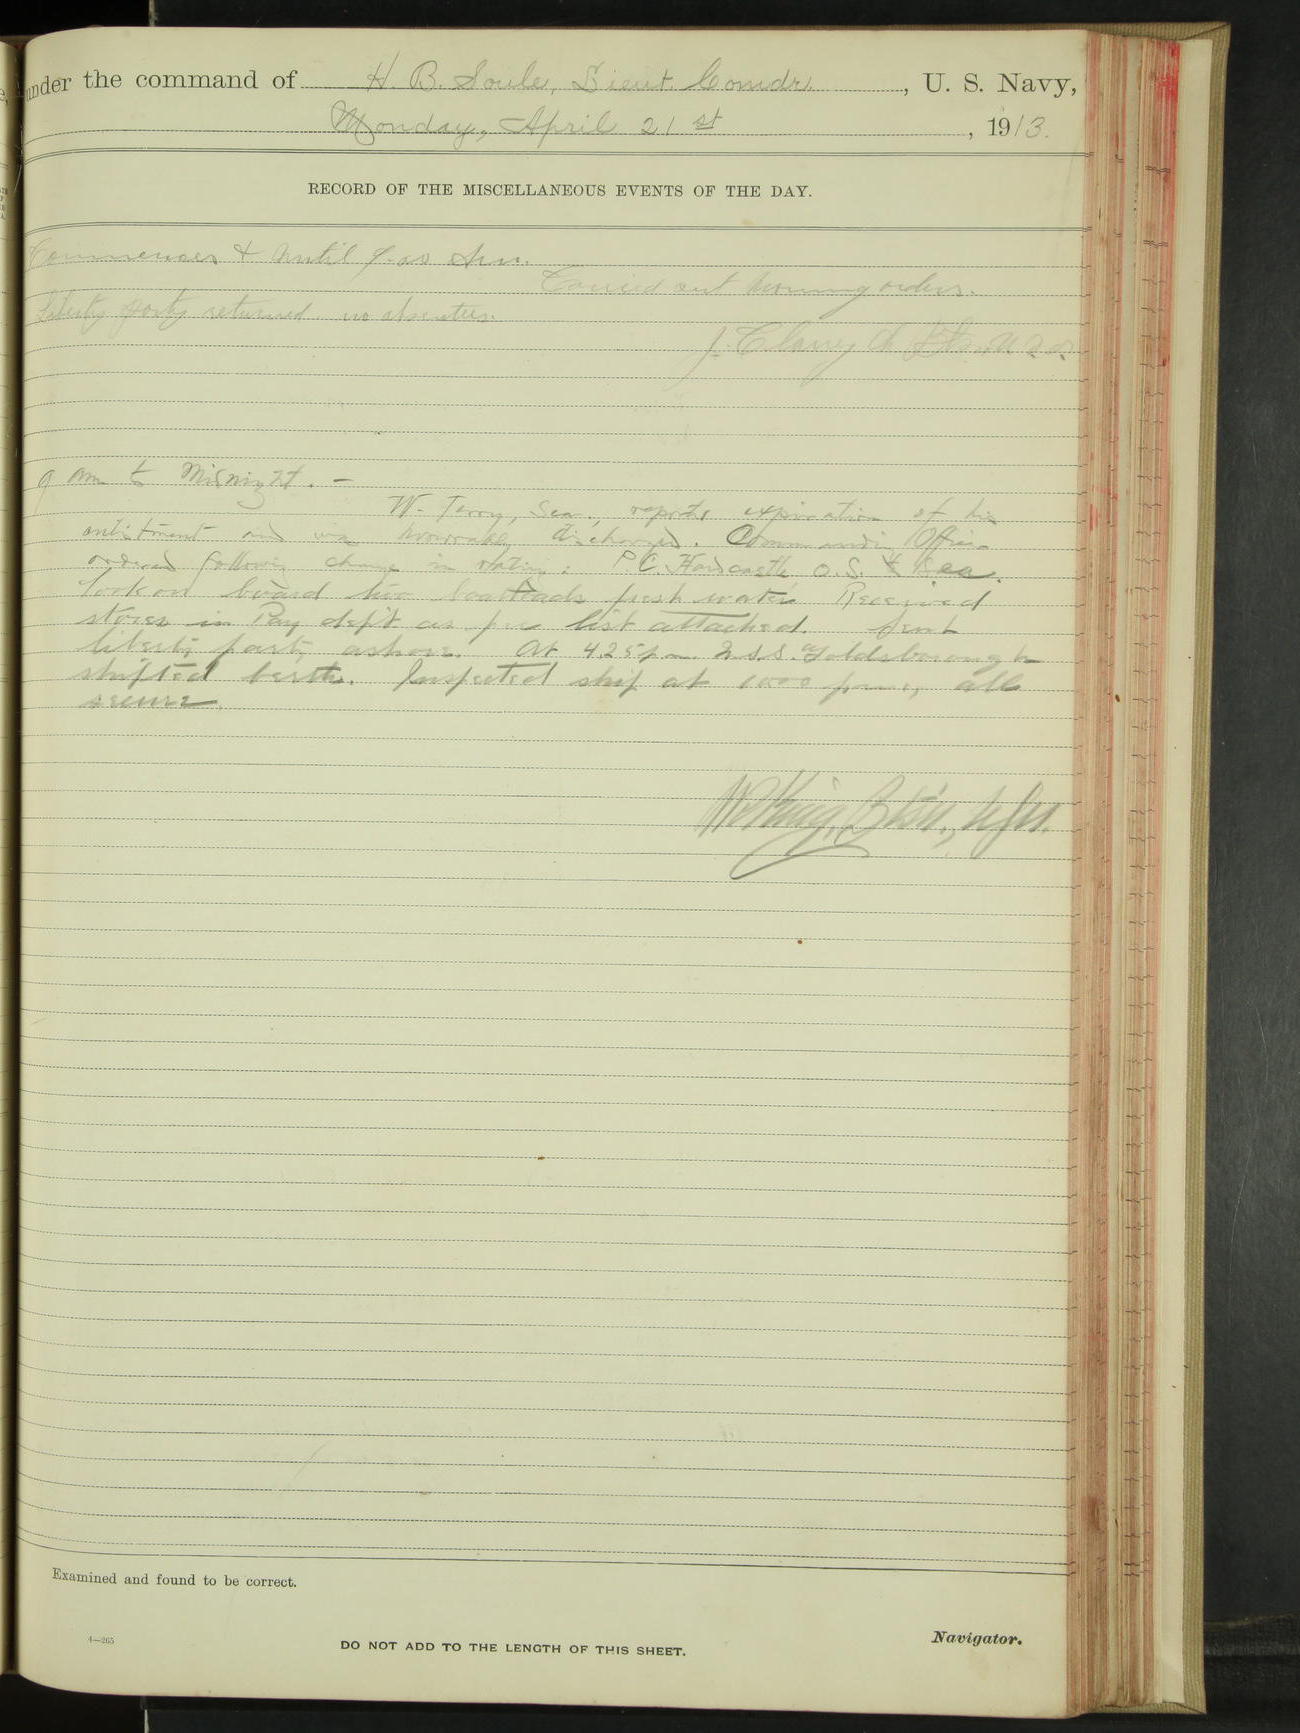 under the command of H. B. Soule, Lieut. Comdr., U. S. Navy,
Monday, April 21st, 1913.
RECORD OF THE MISCELLANEOUS EVENTS OF THE DAY.
Commences & until 9.00 Am.
Carried out morning orders.
Liberty party returned no absentees.
9 am to Midnight. -
W. Terry, Sea., reports expiration of his
enlistment and was honorably discharged. Commanding Officer
ordered following change in rating: P. C. Hardcastle O.S. to Sea.
Took on board two boatloads fresh water Received
stores in Pay dep't as per list attached. Sent
liberty party ashore. At 4.25 p.m. U.S.S. Goldsborough
shifted berth. Inspected ship at 10 00 p.m., all
secure.
Examined and found to be correct.
4-265
DO NOT ADD TO THE LENGTH OF THIS SHEET.
Navigator.